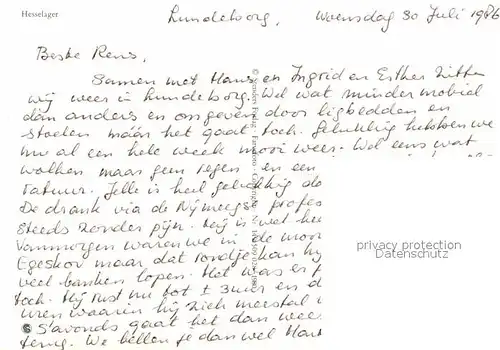 Hesselager
Lundeborg, Woensdag 30 Juli 1986
Beste Rens,
Samen met Hans en Ingrid en Esther zitten
wij weer in Lundeborg. Wel wat minder mobiel
dan anders en omgeven door ligbedden en
stoelen máár het gaat toch. Gelukkig hebben we
nu al een hele week mooi weer. Wel eens wat
wolken maar geen regen en een
natuur. Jelle is heel gelukkig da
De drank via de Nijmeegse profes
steeds zonder pijn. Hij is wel he
Vanmorgen waren we in de moo
Egeskov maar dat rondje kan hij
veel banken lopen. Het was er f
toch. Hij rust nu tot ± 3 uur en d
uren waarin hij zich meestal
S'avonds gaat het dan wee
terug. We bellen je dan wel Hart
privacy protection
Datenschutz